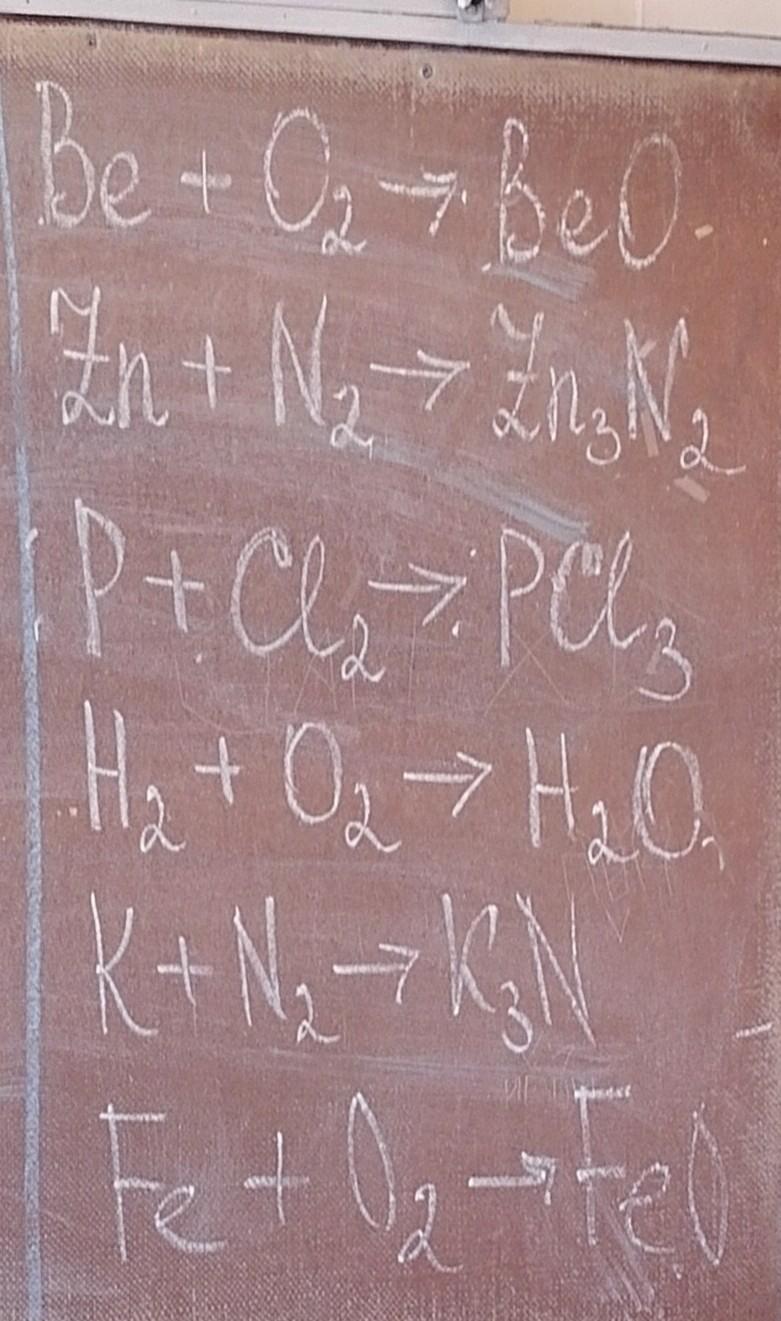 Be + O₂ → BeO
Zn + N₂ → Zn₃N₂
P + Cl₂ → PCl₃
H₂ + O₂ → H₂O
K + N₂ → K₃N
Fe + O₂ → FeO